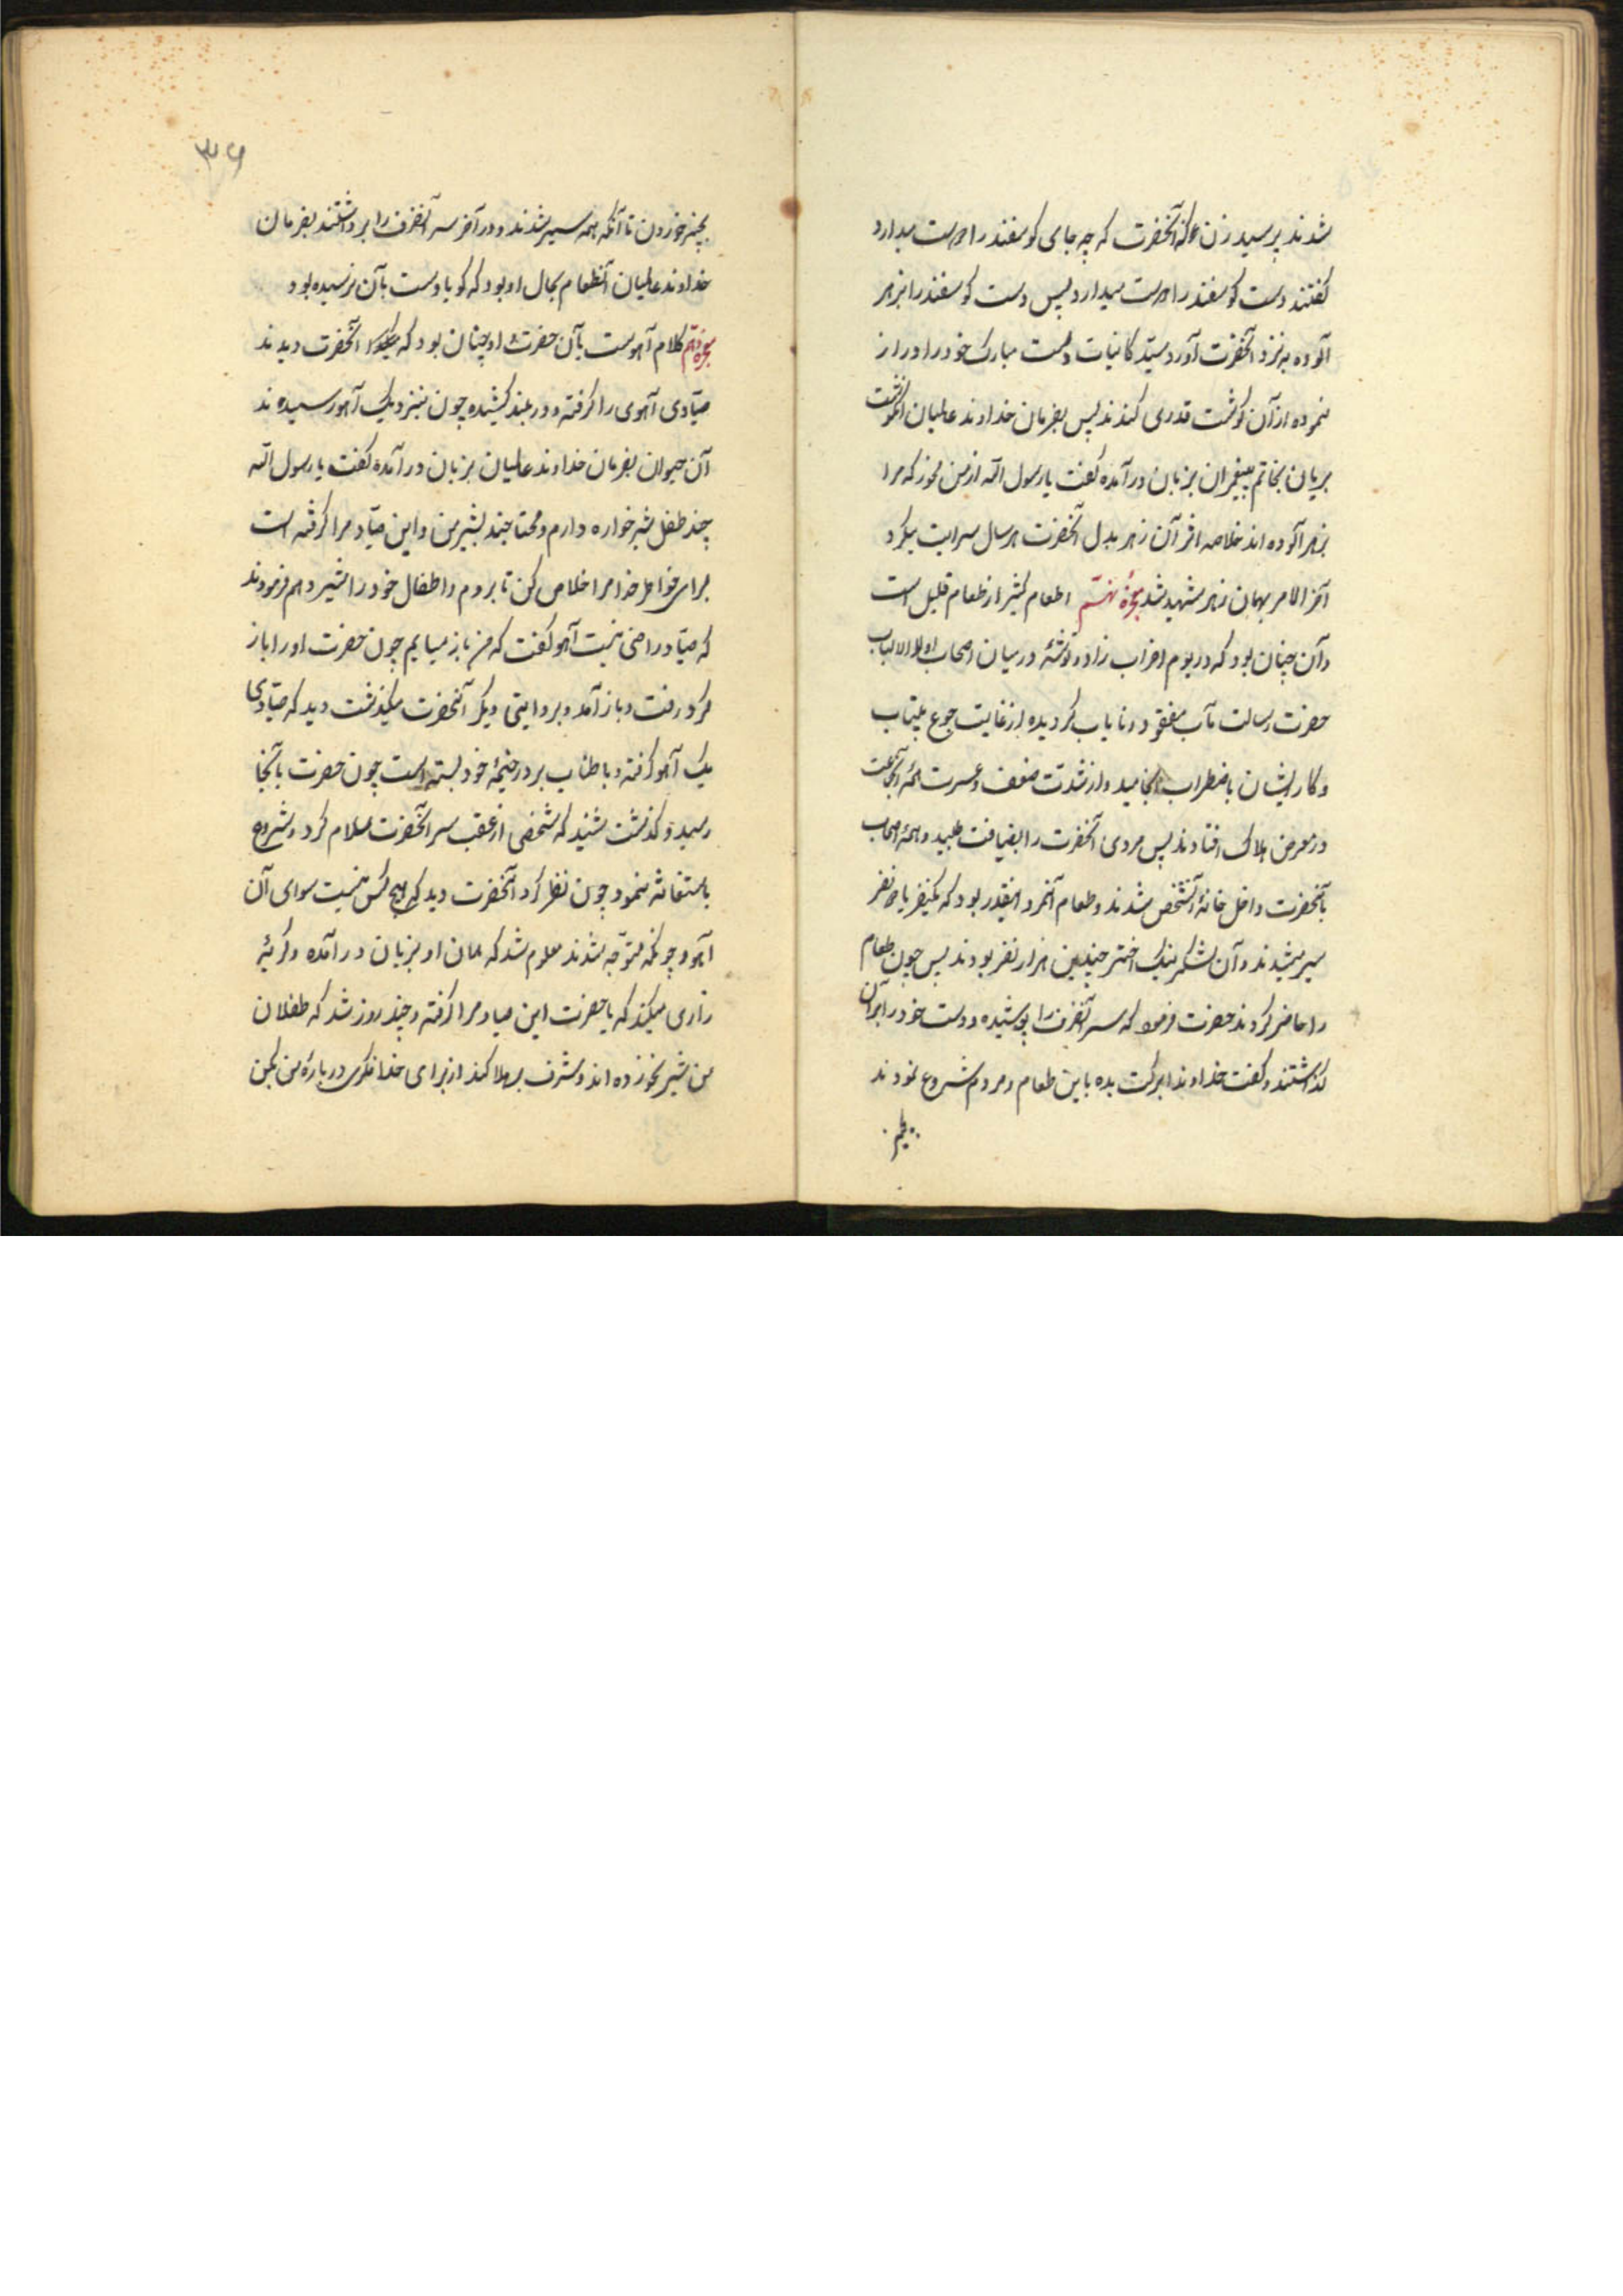 شدند پرسید زن که آنحضرت که چه جای کوسفند را دوست میدارد
کفتند دست کوسفند را دوست میدارد پس دست کوسفند را بزهر
آلوده به نزد آنحضرت آورد سید کاینات دست مبارک خود را دراز
نموده از آن کوشت قدری کندند پس بفرمان خداوند عالمیان آنکوشت
بریان بخاتم پیغمبران بزبان درآمده کفت یا رسول الله از من مخور که مرا
بزهر آلوده اند خلاصه اثر آن زهر بدل آنحضرت هر سال سرایت میکرد
آخر الامر بهمان زهر شهید شد معجزهٔ نهم اطعام کثیر از طعام قلیل است
و آن چنان بود که در یوم احزاب زاد و توشهٔ در میان اصحاب اولو الالباب
حضرت رسالت مآب مفقود و نایاب کردیده از غایت جوع بیتاب
و کار ایشان باضطراب انجامید و از شدت ضعف و عسرت همهٔ آنجماعت
در معرض هلاک افتادند پس مردی آنحضرت را بضیافت طلبید و همهٔ اصحاب
بآنحضرت داخل خانهٔ آنشخص شدند و طعام آنمرد اینقدر بود که یکنفر یا دو نفر
سیر میشدند و آن لشکر نیک اختر چندین هزار نفر بودند پس چون طعام
را حاضر کردند حضرت فرمود که سر آنظرف را پوشیده و دست خود را بر آن
کذاشتند و کفت خداوندا برکت بده باین طعام و مردم شروع نمودند
بچیز خوردن تا آنکه همه سیر شدند و در آخر سر آنظرف را برداشتند بفرمان
خداوند عالمیان آنطعام بحال او بود که کویا دست بآن نرسیده بود
معجزهٔ دهم کلام آهوست بآن حضرت و چنان بود که آنحضرت دیدند
صیادی آهوی را کرفته و در بند کشیده چون بنزدیک آهو رسیدند
آن حیوان بفرمان خداوند عالمیان بزبان درآمده کفت یا رسول الله
چند طفل شیرخواره دارم و محتاجند بشیر من و این صیاد مرا کرفته است
برای خدا مرا خلاص کن تا بروم و اطفال خود را شیر دهم فرمودند
که صیاد راضی نیست آهو کفت که من باز میایم چون حضرت او را باز
کرد رفت و باز آمد و بروایتی دیکر آنحضرت میکذشت دید که صیادی
یک آهو کرفته و با طناب بر در خیمهٔ خود بسته است چون حضرت بآنجا
رسید و کذشت شنید که شخصی از عقب سر آنحضرت سلام کرد و شروع
باستغاثه نمود چون نظر کرد آنحضرت دید که هیچ کس نیست سوای آن
آهو و چونکه متوجه شدند معلوم شد که همان آهو بزبان درآمده و کریهٔ
زاری میکند که یا حضرت این صیاد مرا کرفته و چند روز شد که طفلان
من شیر نخورده اند و مشرف بهلاکند از برای خدا فکری دربارهٔ من بکن